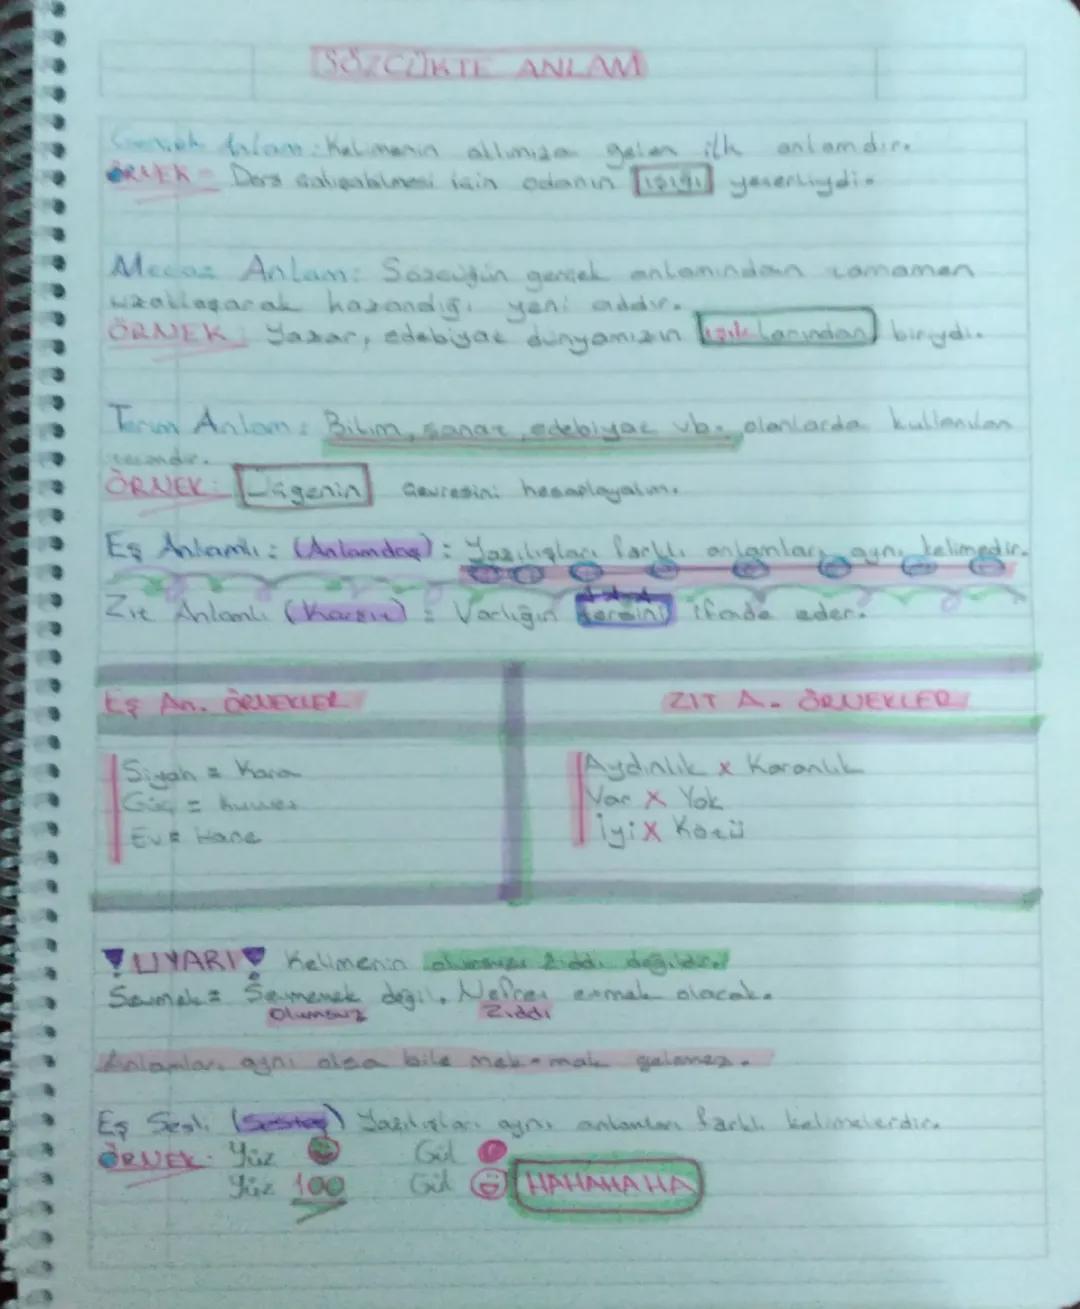 SÖZCÜKTE ANLAM
Gerçek Anlam: Kelimenin aklımıza gelen ilk anlamdır.
ÖRNEK = Ders çalışabilmesi için odanın ışığı yeterliydi.
Mecaz Anlam: Sözcüğün gerçek anlamından tamamen
uzaklaşarak kazandığı yeni addır.
ÖRNEK: Yazar, edebiyat dünyamızın ışıklarından biriydi.
Terim Anlam: Bilim, sanat, edebiyat vb. alanlarda kullanılan
terimdir.
ÖRNEK: Üçgenin çevresini hesaplayalım.
Eş Anlamlı: (Anlamdaş): Yazılışları farklı anlamları aynı kelimedir.
Zıt Anlamlı (Karşıt): Varlığın tersini ifade eder.
Eş An. ÖRNEKLER
Siyah = Kara
Güç = kuvvet
Ev = Hane
ZIT A. ÖRNEKLER
Aydınlık x Karanlık
Var x Yok
İyi x Kötü
! UYARI ! Kelimenin olumsuzu zıddı değildir!
Sevmek = Sevmemek değil. Nefret etmek olacak.
Olumsuz Zıddı
Anlamları aynı olsa bile mek-mak gelemez.
Eş Sesli (Sesteş) Yazılışları aynı anlamları farklı kelimelerdir.
ÖRNEK: Yüz Gül
Yüz 100 Gül HAHAHAHA